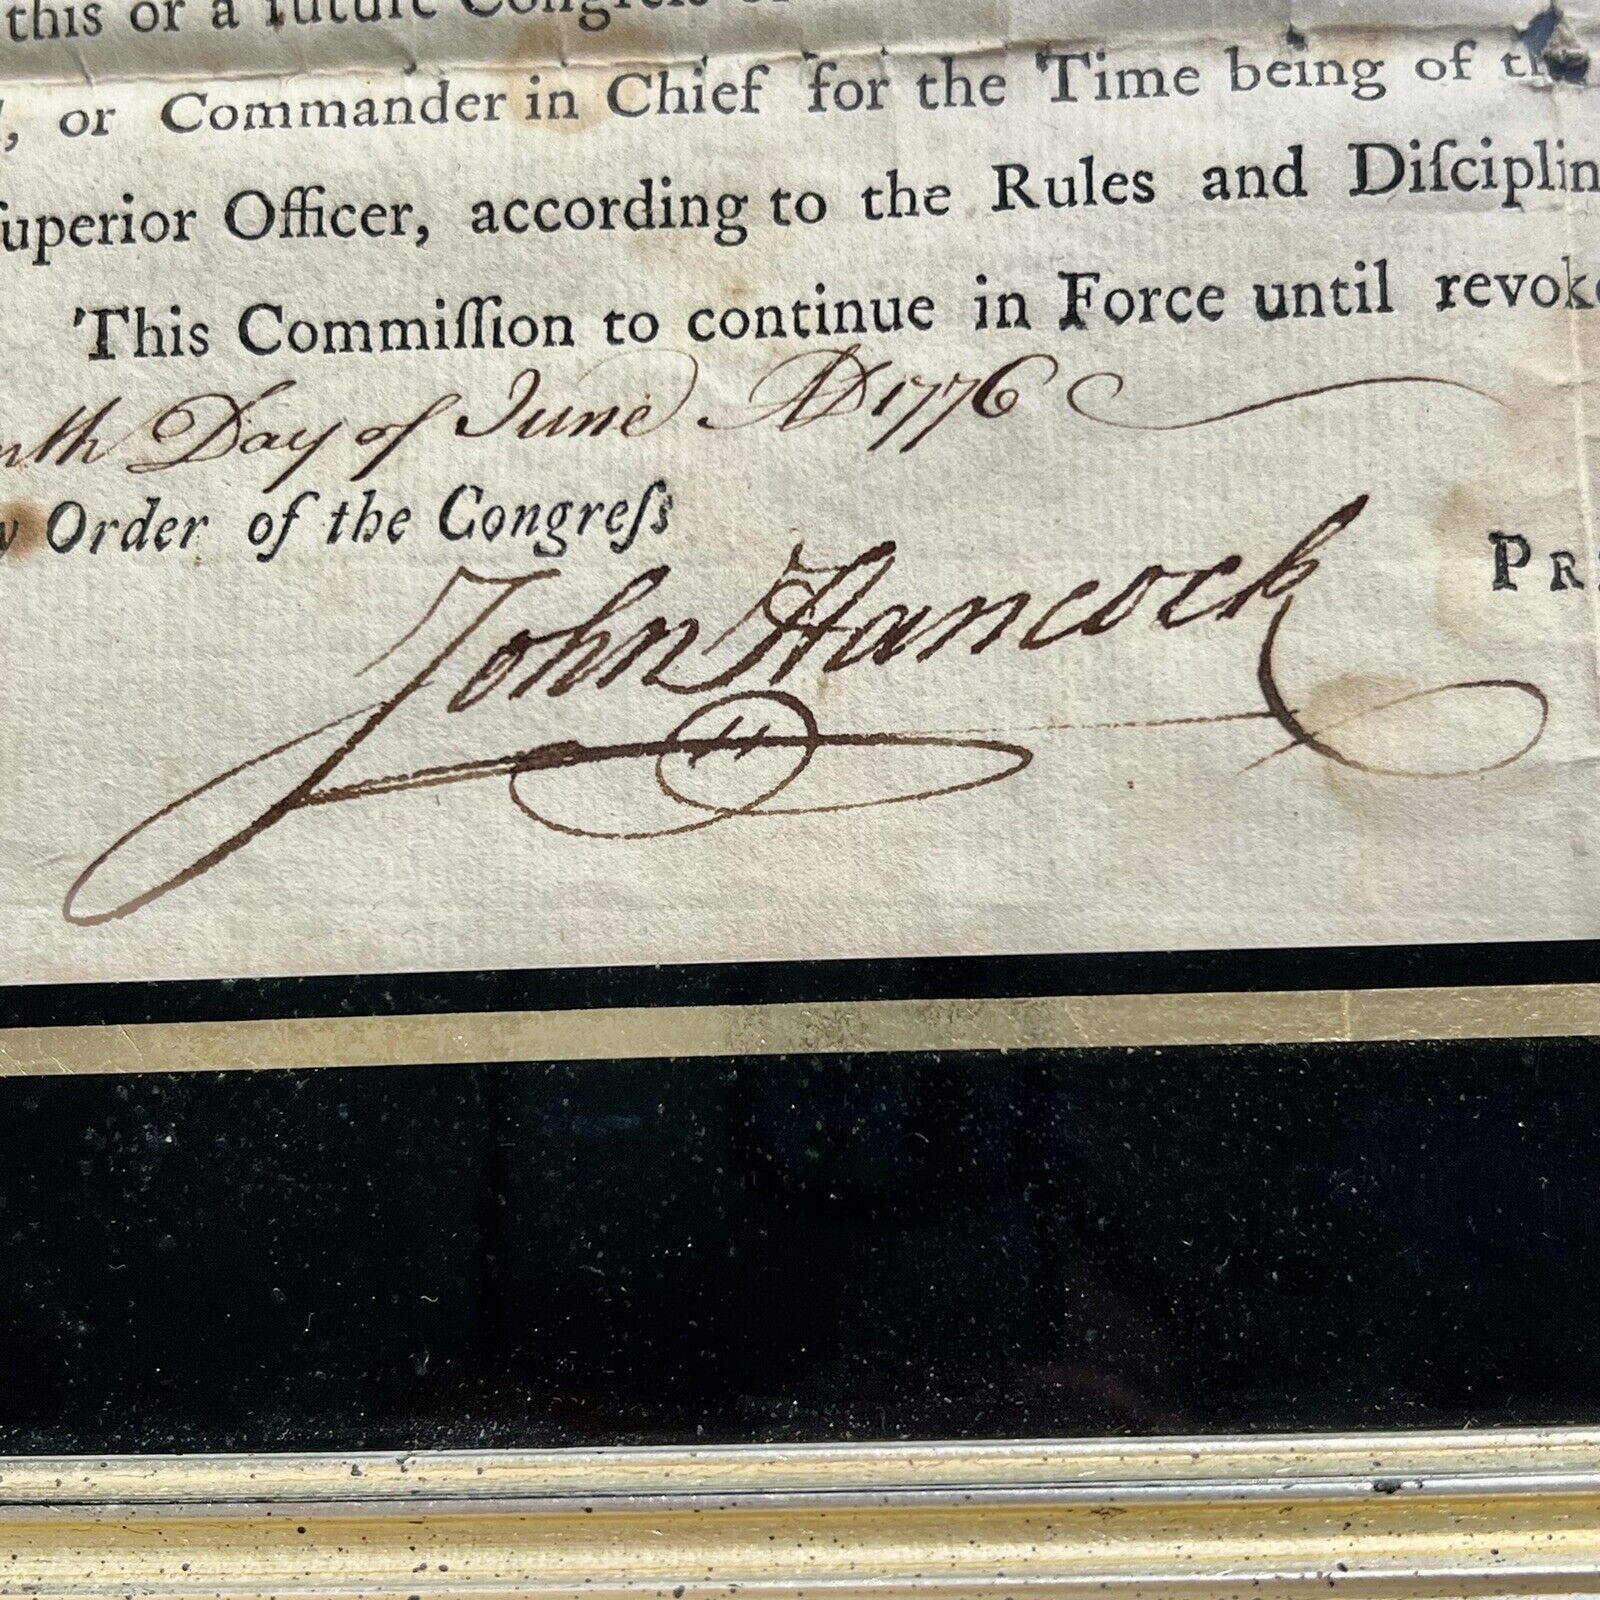 this or a future Congress
, or Commander in Chief for the Time being of the
ſuperior Officer, according to the Rules and Diſciplin
This Commiſſion to continue in Force until revok
nth Day of June AD 1776
y Order of the Congreſs
John Hancock
PR